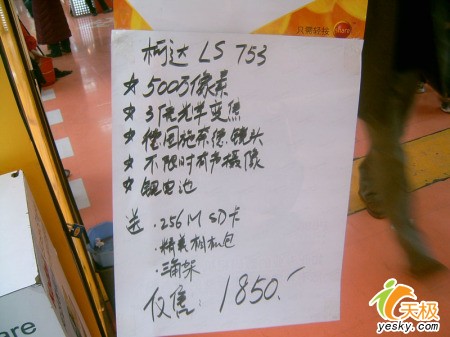 只要轻按
Share
柯达 LS 753
★ 500万像素
★ 3倍光学变焦
★ 德国施奈德镜头
★ 不限时有声摄像
★ 锂电池
送 . 256M SD卡
. 精美相机包
. 三角架
仅售: 1850.-
are
天极
yesky.com